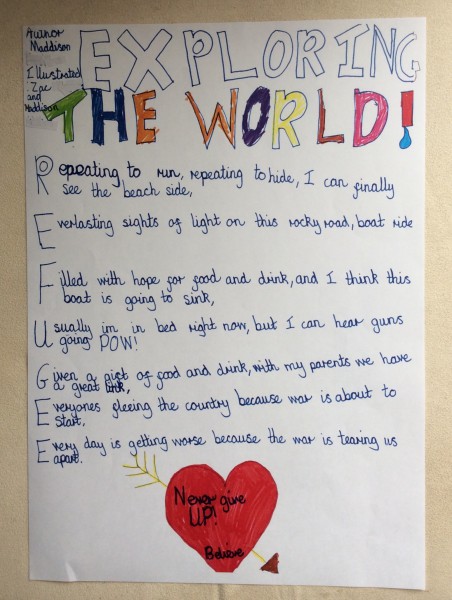 Author
Maddison
Illustrated
Zac
and
Maddison
EXPLORING
THE WORLD!
Repeating to run, repeating to hide, I can finally
see the beach side,
Everlasting sights of light on this rocky road, boat ride
Filled with hope for food and drink, and I think this
boat is going to sink,
Usually im in bed right now, but I can hear guns
going POW!
Given a gift of food and drink, with my parents we have
a great link,
Everyones fleeing the country because war is about to
start,
Every day is getting worse because the war is tearing us
apart.
Never give
UP!
Believe